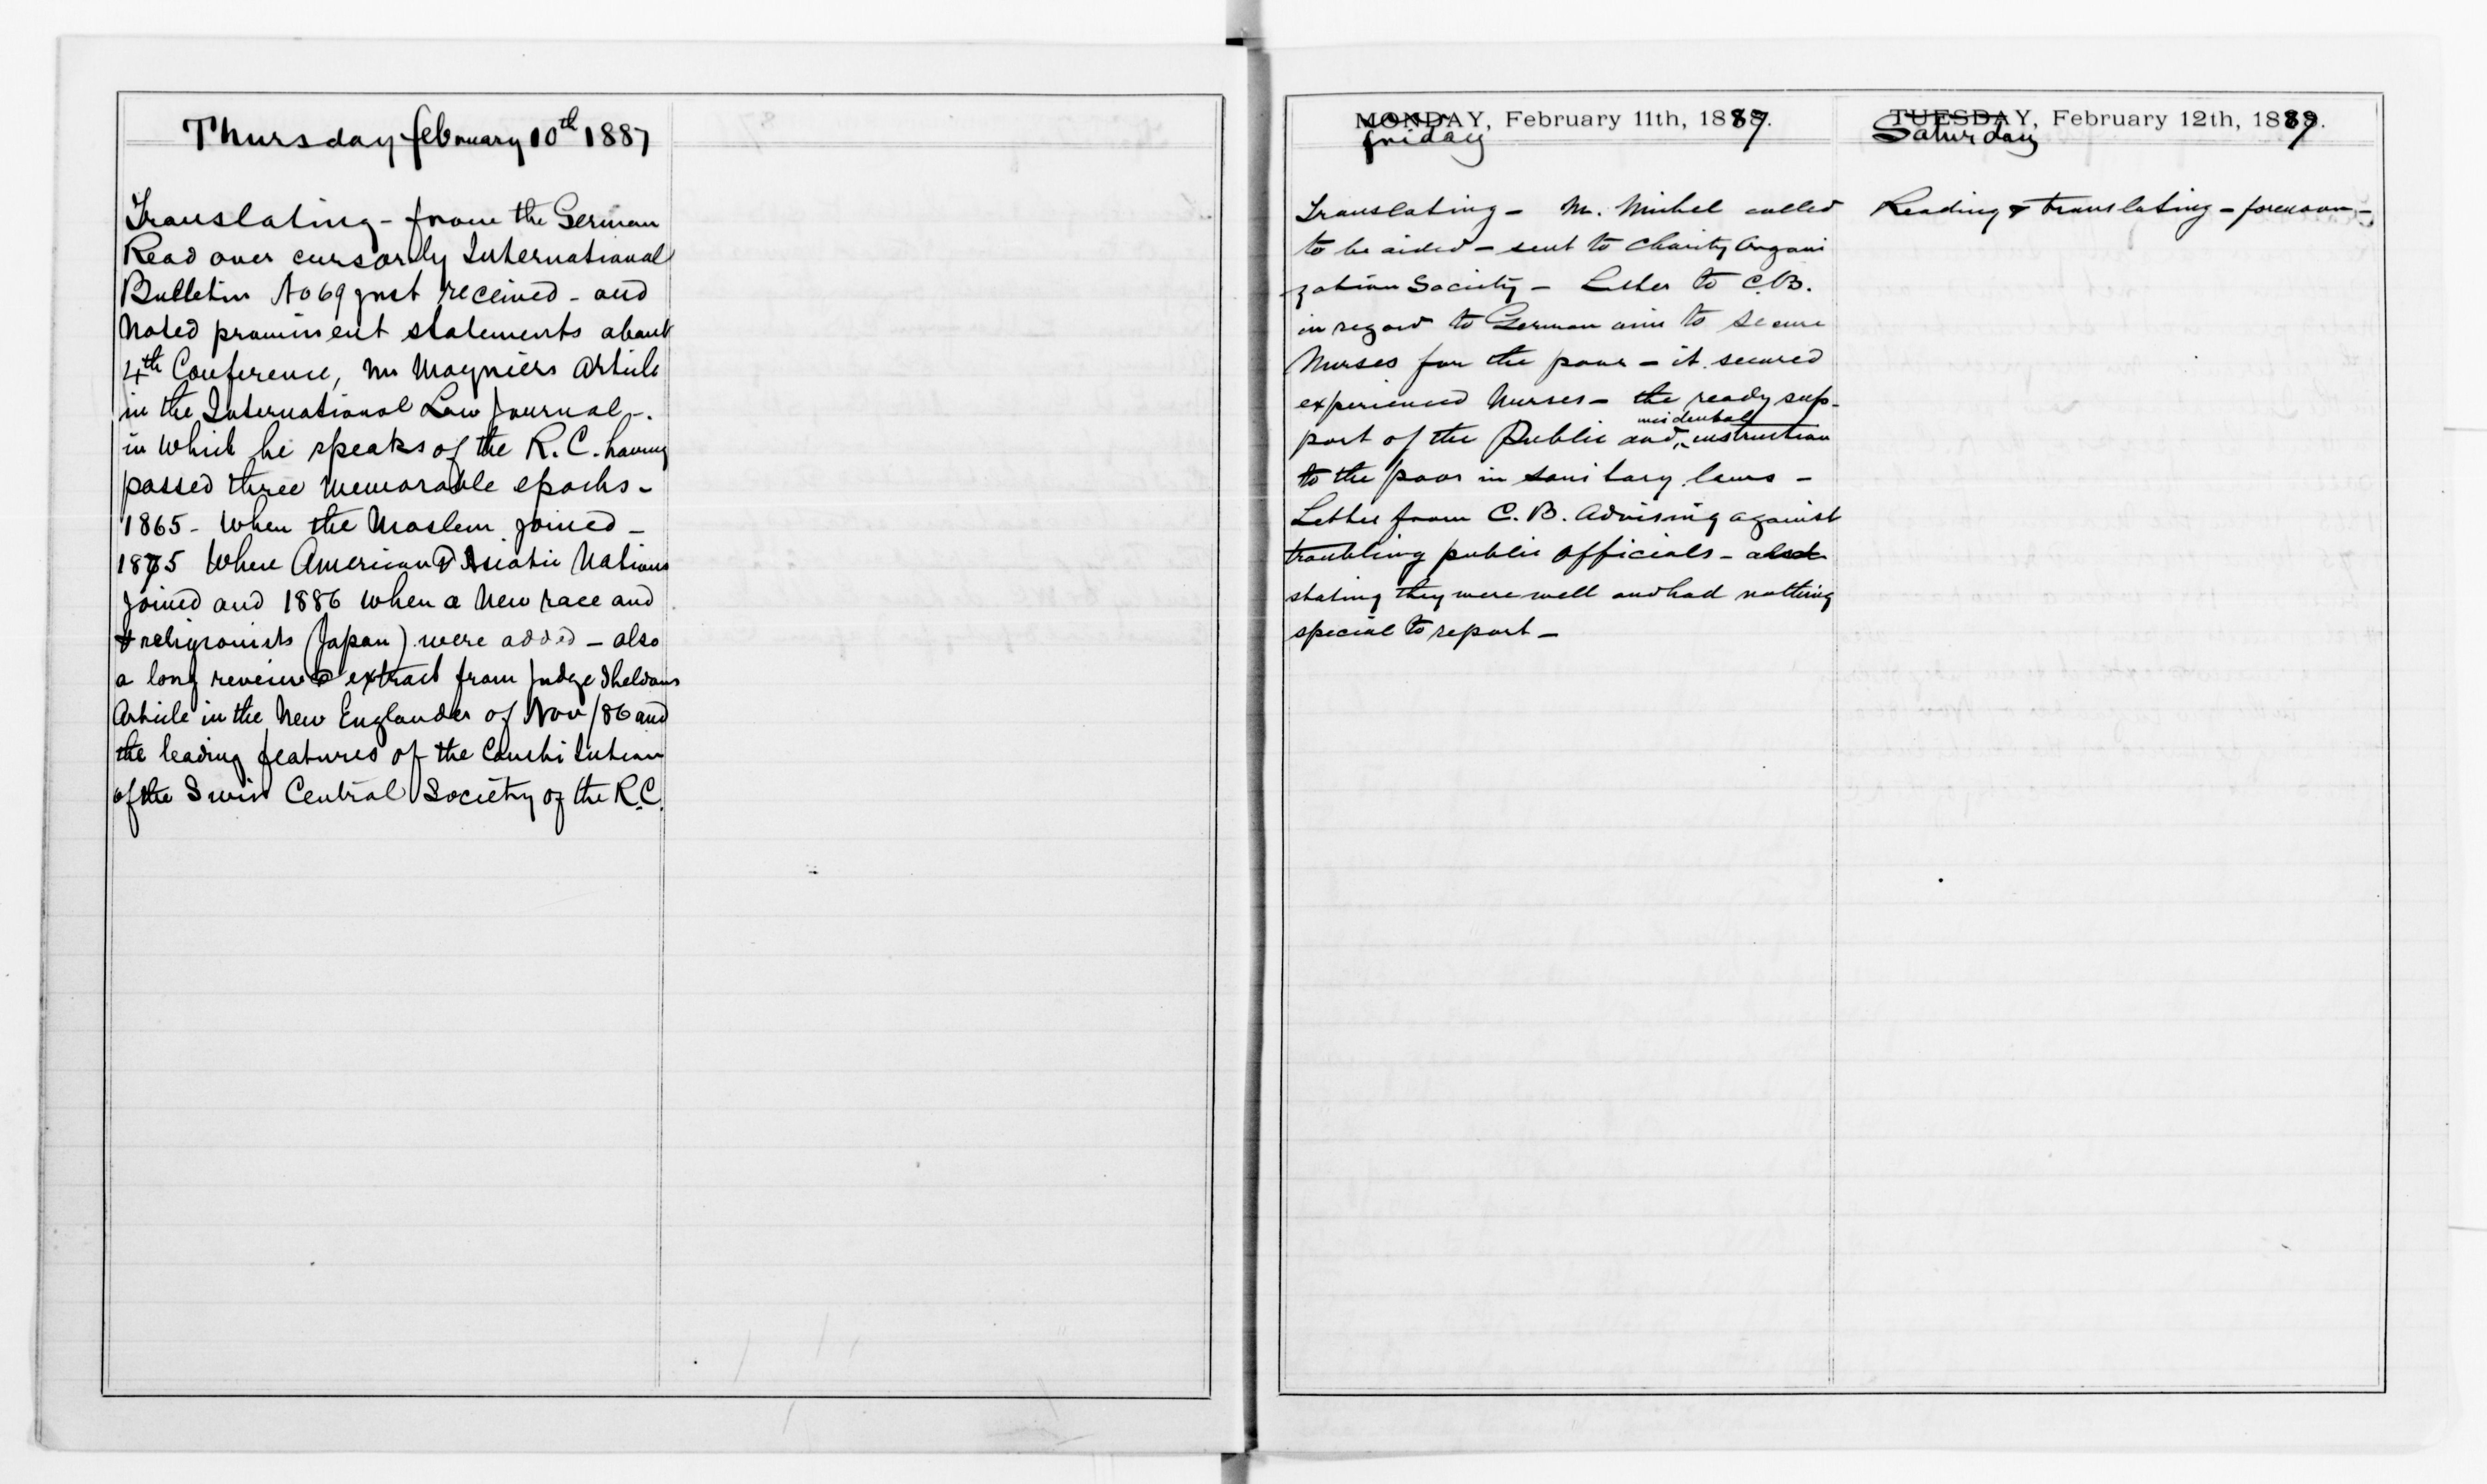 Thursday february 10th 1887
Translating - from the German
Read over cursorily International
Bulletin No 69 just received - and
Noted prominent statements about
4th Conference, Mr Moyniers Article
in the International Law Journal -
in which he speaks of the R. C. having
passed three memorable epochs -
1865 - When the Moslem joined -
1875 When American & Asiatic Nations
Joined and 1886 when a New race and
& religionists (Japan) were added - also
a long review & extract from Judge Sheldons
Article in the New Englander of Nov /86 and
the leading features of the Constitution
of the Swiss Central Society of the R. C.
MONDAY, February 11th, 1887.
friday
Translating - M. Michel called
to be aided - sent to Charity Organi
zation Society - Letter to C. B.
in regard to German aim to secure
Nurses for the poor - it secured
experienced Nurses - the ready sup-
port of the Public and incidental instruction
to the poor in sanitary laws -
Letter from C. B. Advising against
troubling public officials - also
stating they were well and had nothing
special to report -
TUESDAY, February 12th, 1887.
Saturday
Reading & translating - forenoon -